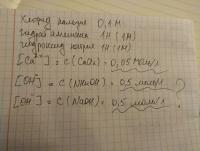 Хлорид кальция 0,1М
гидрат аммиака 1Н (1М)
гидроксид натрия 1Н (1М)
[Ca²⁺] = c(CaCl₂) = 0,05 моль/л
[OH⁻] = c(NH₄OH) = 0,5 моль/л
[OH⁻] = c(NaOH) = 0,5 моль/л ?